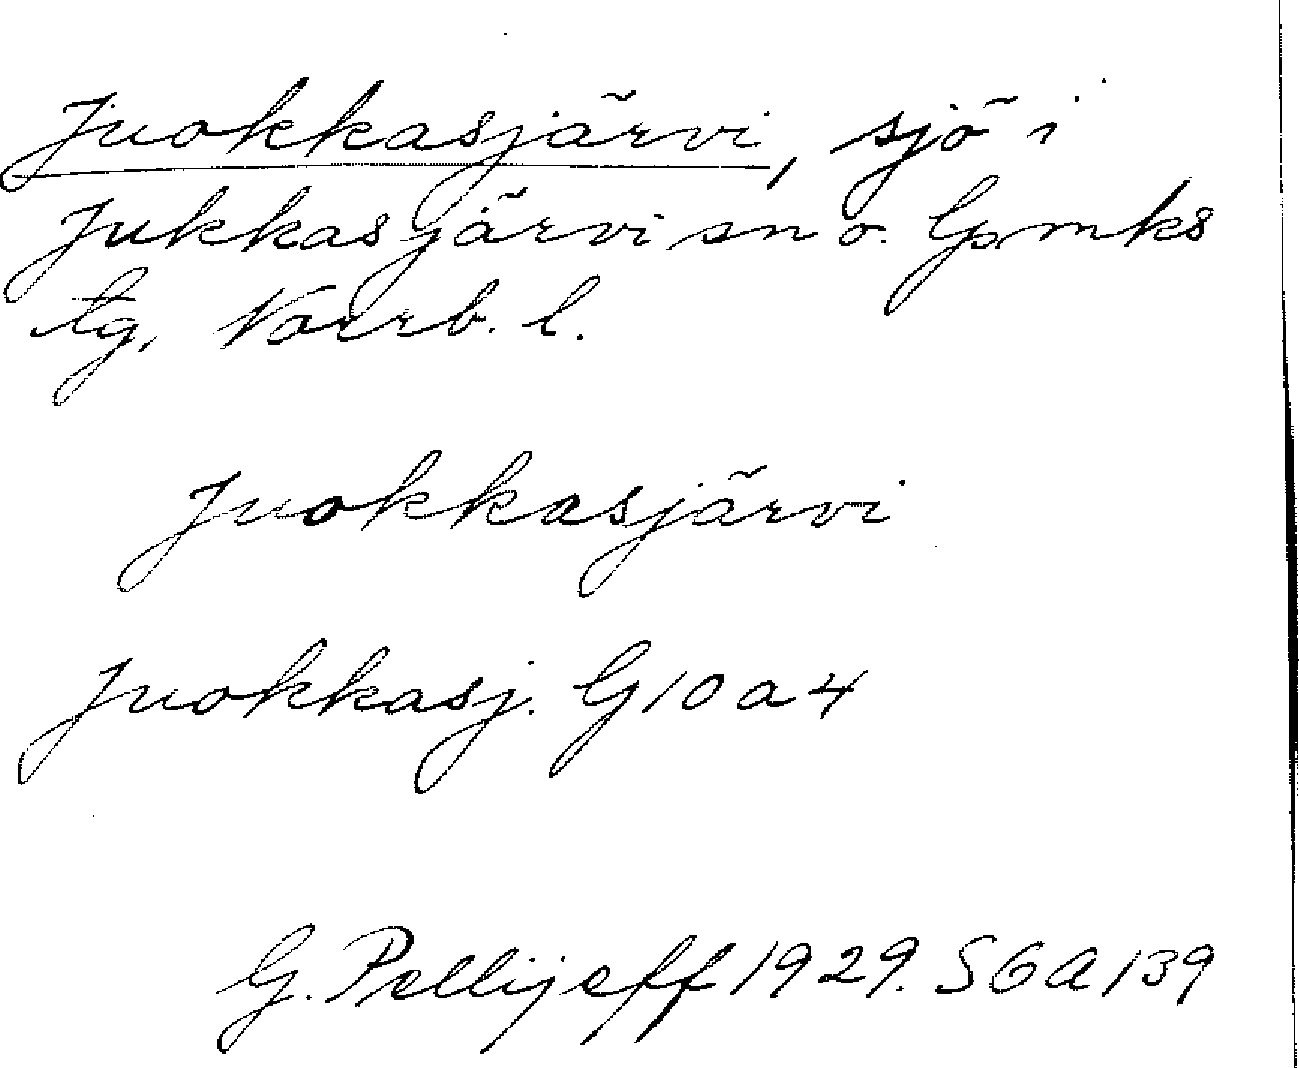 Juokkasjärvi, sjö i
Jukkasjärvi sn o. Lpmks
tg, Norrb. l.
Juokkasjärvi
Juokkasj. G10a4
G. Pellijeff 1929. SGA139